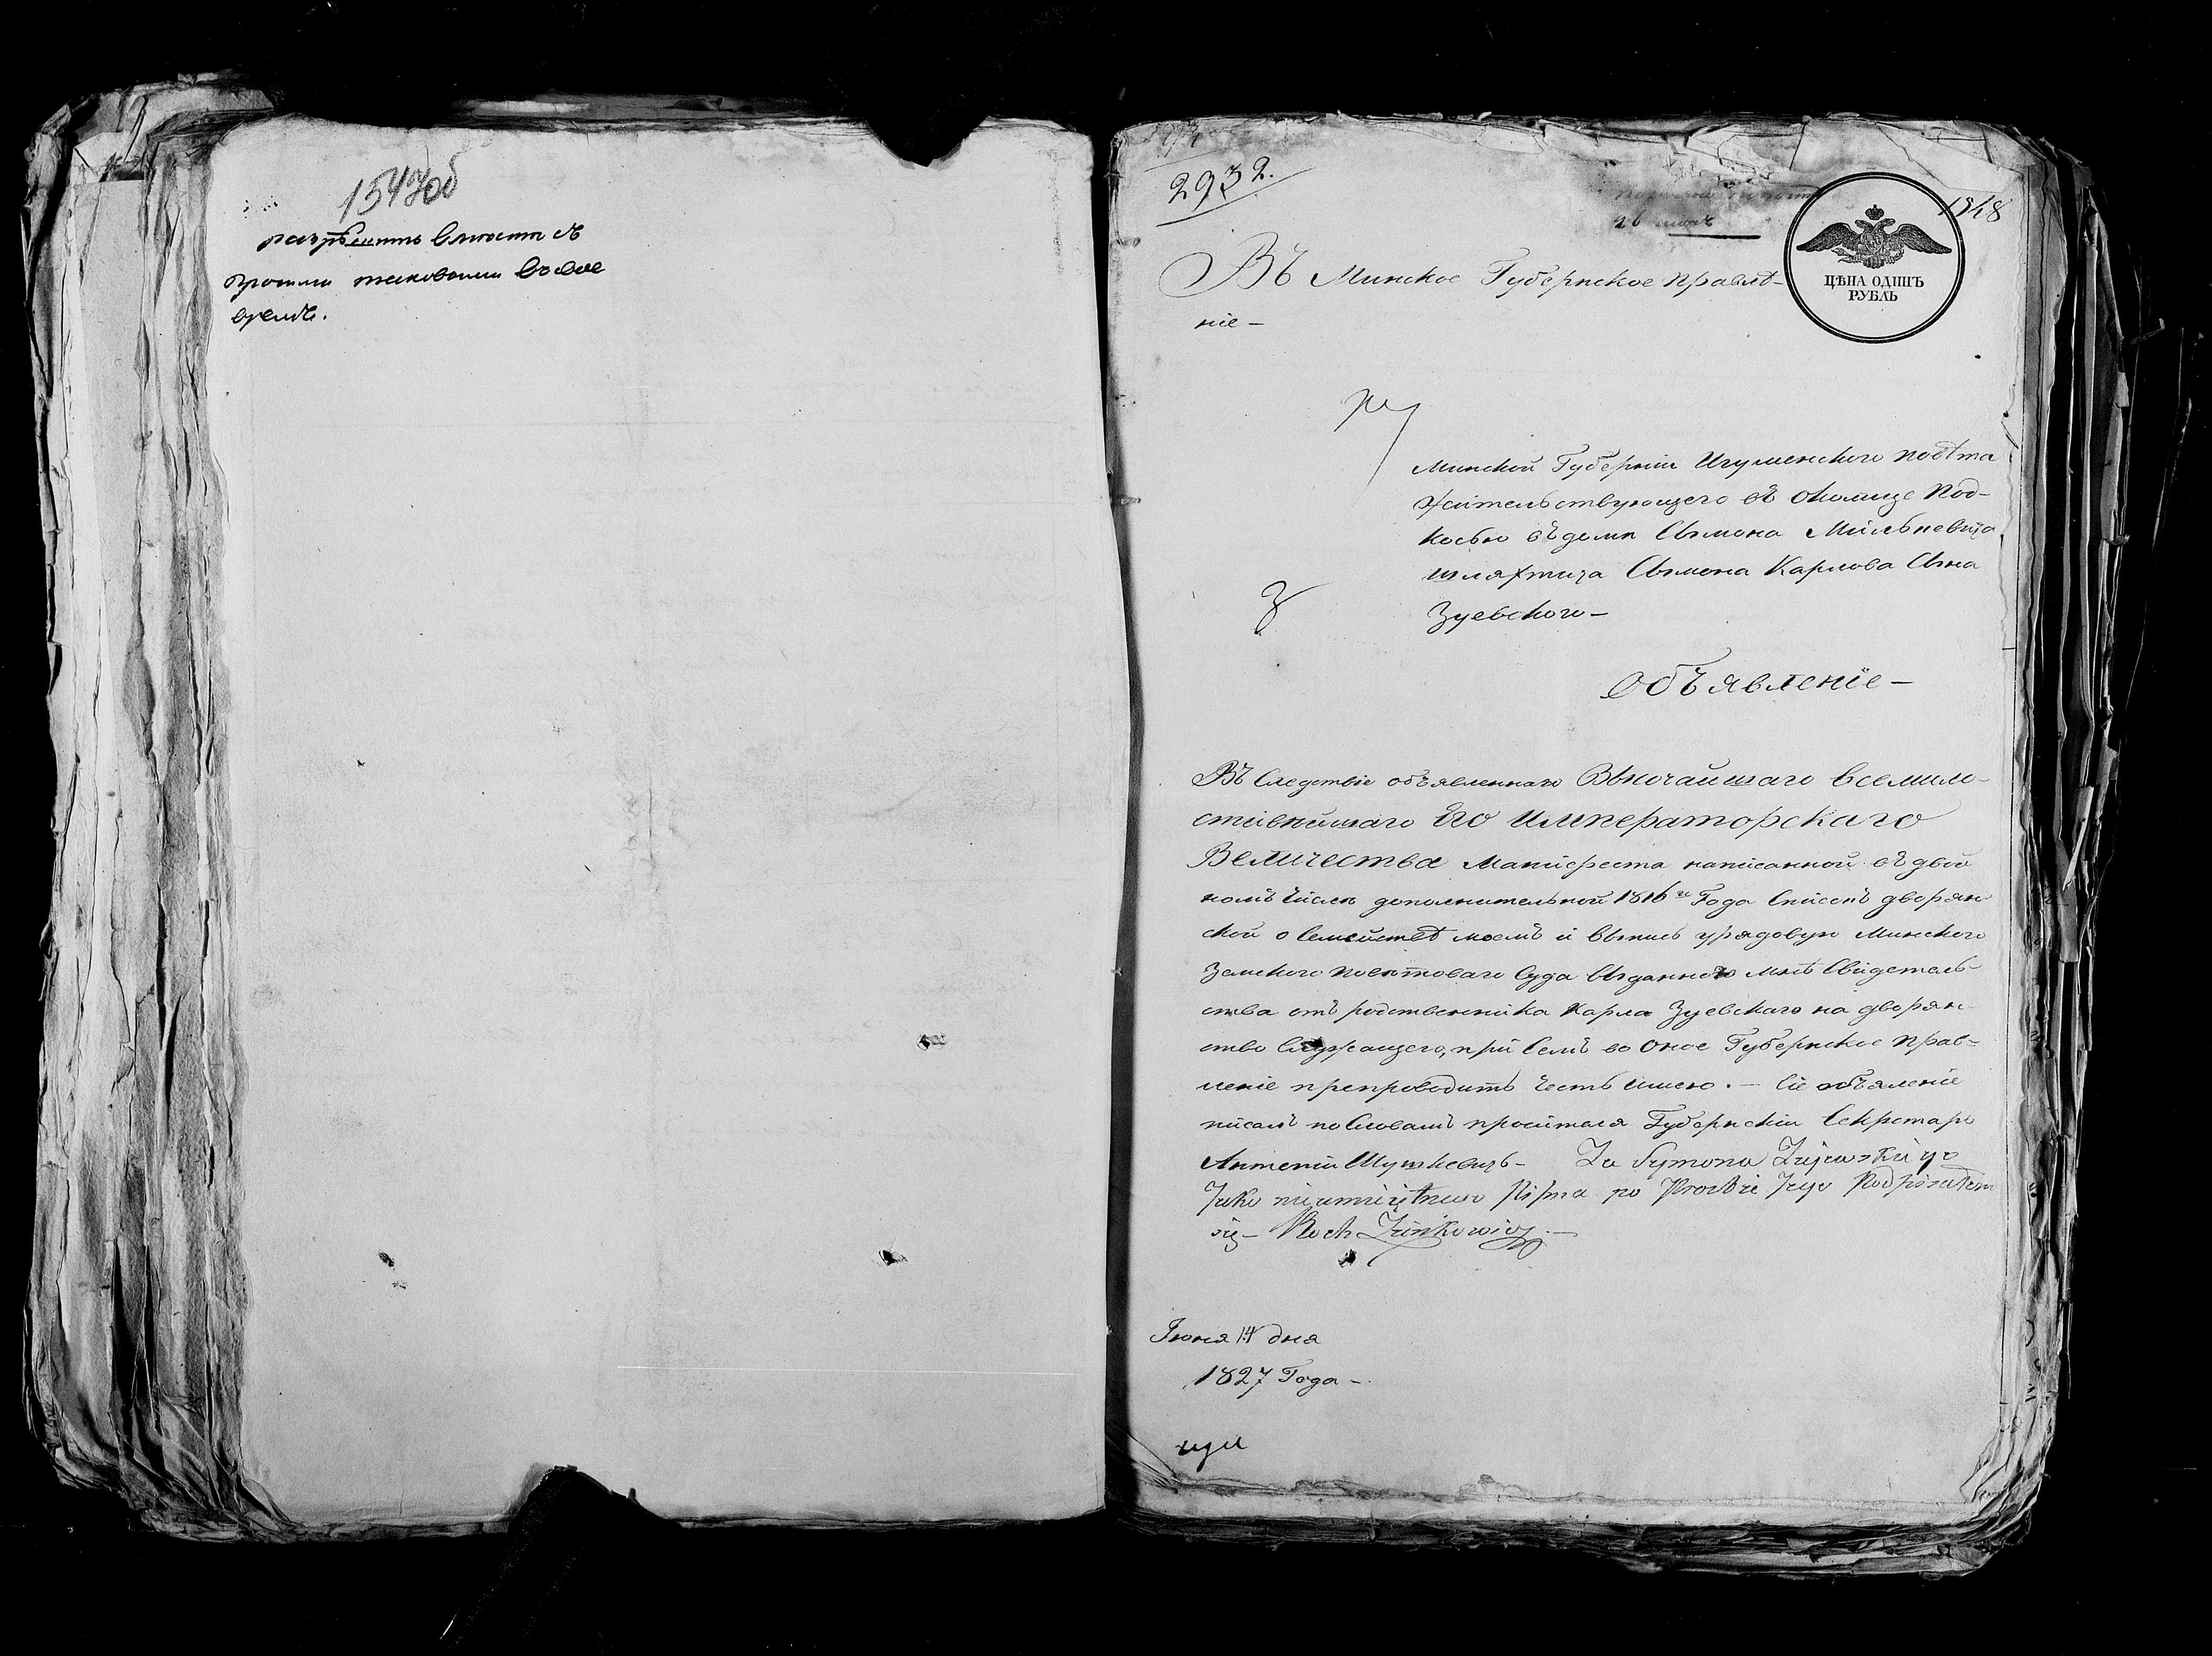 1547об
разрѣшить вместе съ
другими таковыми въ свое
время.
2932.
1548
ЦѢНА ОДИНЪ
РУБЛЬ
Въ Минское Губернское Правлѣ-
ніе -
Минской Губерніи Игуменского повѣта
жительствующего въ околице Под-
косью въ доми Сымона
шляхтича Сымона Карлова Сына
Зуевского -
Объявленіе -
Въ Следствіе объявленнаго Высочайшаго всемило-
стивѣйшаго Его Императорскаго
Величества Манифеста написанной въ двой
номъ числѣ дополнительной 1816го Года Списокъ дворян
ской о Семействѣ моемъ и выпись урядовую Минского
Земского повѣтоваго Суда выданного мнѣ свидетель-
ства отъ родственника Карла Зуевского на дворян-
ство Служащего, при Семъ во Оное Губернское Прав-
леніе препроводить честь имею. - Сіе объяленіе
писалъ по Словамъ просителя Губернскій Секретарь
Антеній Шушкевичъ - Za Symona Zujewskiego
Jako nieumiejętnego Pisma po Prośbie Jego Podpisałem
się - Roch Zinkowicz -
Іюня 14 дня
1827 Года -